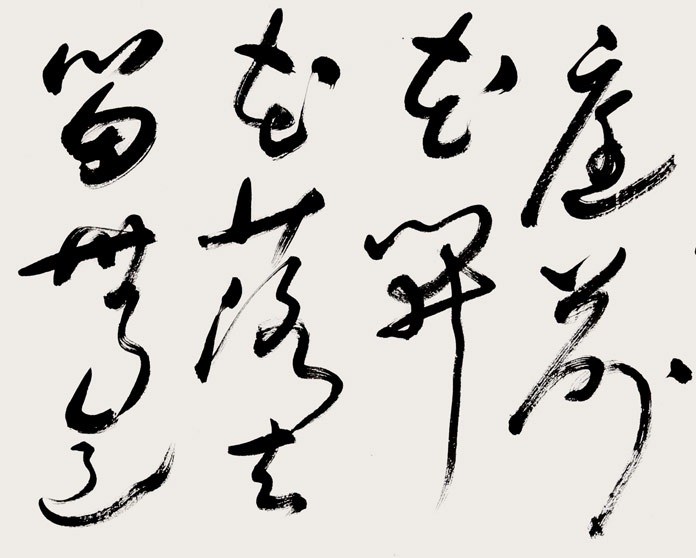 庭前
花開
花落去
留無意